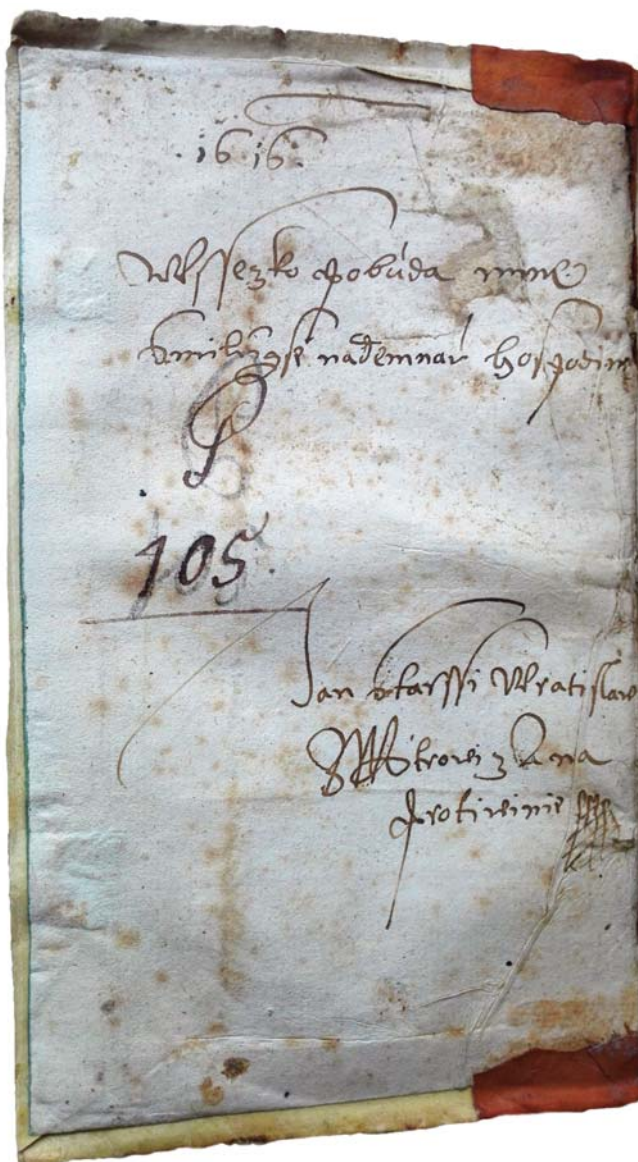 1616.
Wssezko pobáda mne
Smilůgse nademnau hospodine
P
105.
Jan starssi Wratislaw
z Mitrowicz A na
Protiwinie